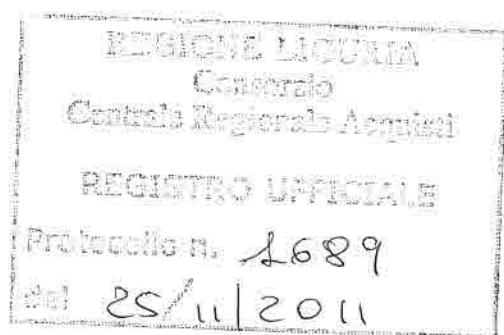 REGIONE LIGURIA
Consorzio
Centrale Regionale Acquisti
REGISTRO UFFICIALE
Protocollo n. 1689
del 25/11/2011